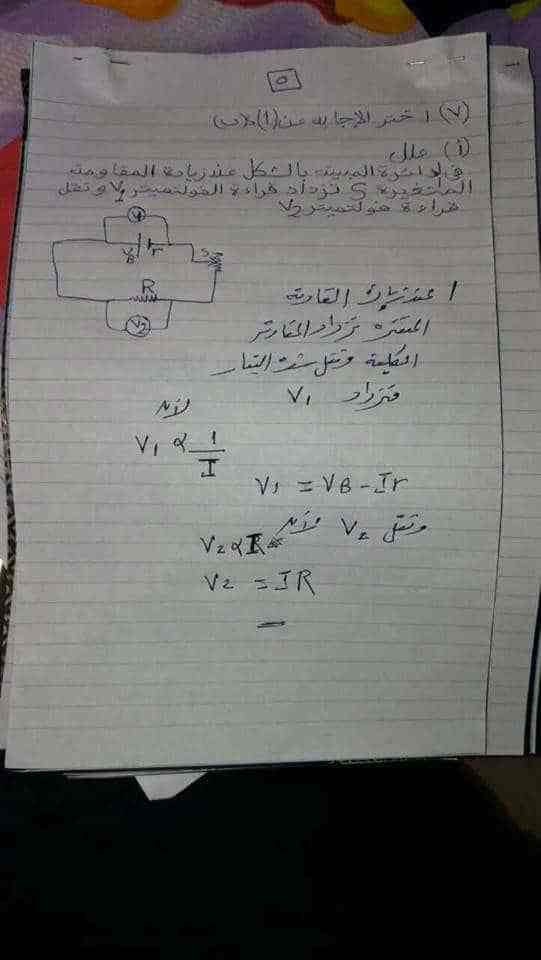 ٥
(٧) اختر الإجابه عن (أ) او (ب)
(أ) علل
في الدائرة المبينه بالشكل عند زيادة المقاومة
المتغيرة S تزداد قراءة الفولتميتر V1 وتقل
قراءة فولتميتر V2
V1
VB r S
R
V2
عند زيادة المقاومة
المتغيرة تزداد المقاومة
الكلية وتقل شدة التيار
فتزداد V1 لأنه
V1 α 1/I
V1 = VB - Ir
وتقل V2 لأنه
V2 α I
V2 = IR